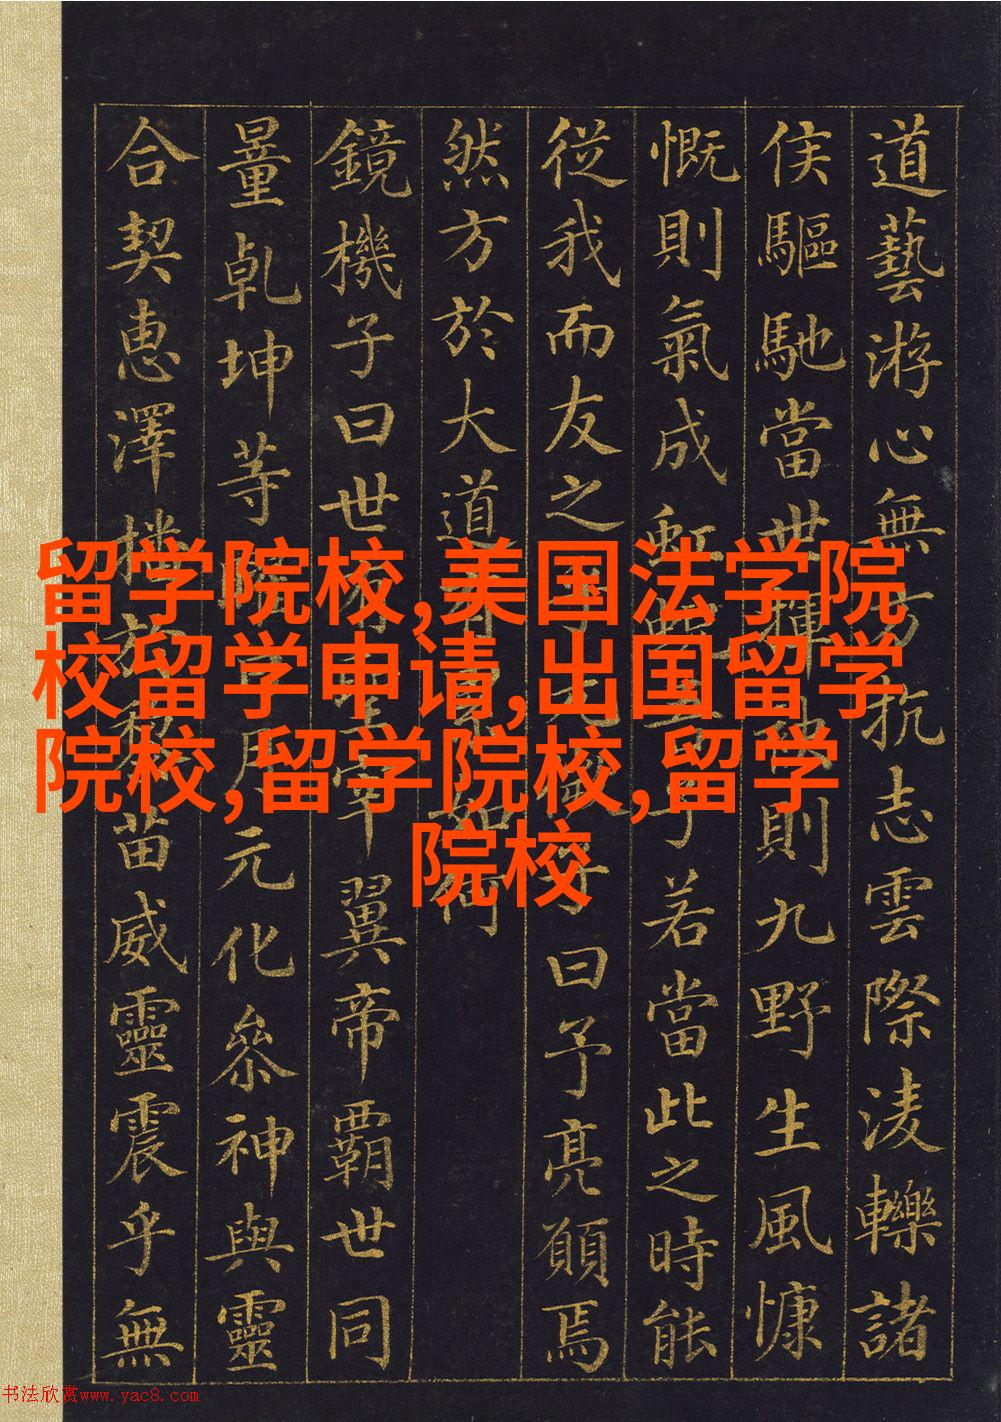 道藝游心無方抗志雲際淩轢諸
侯驅馳當世揮袂則九野生風慷
慨則氣成虹蜺吾子若當此之時能
從我而友之乎元微子曰予亮願焉
然方於大道有累如何
鏡機子曰世有聖宰翼帝霸世同
量乾坤等曜日月元化參神與靈
合契惠澤播於黎苗威靈震乎無
留学院校,美国法学院
校留学申请,出国留学
院校,留学院校,留学
院校
书法欣赏www.yac8.com